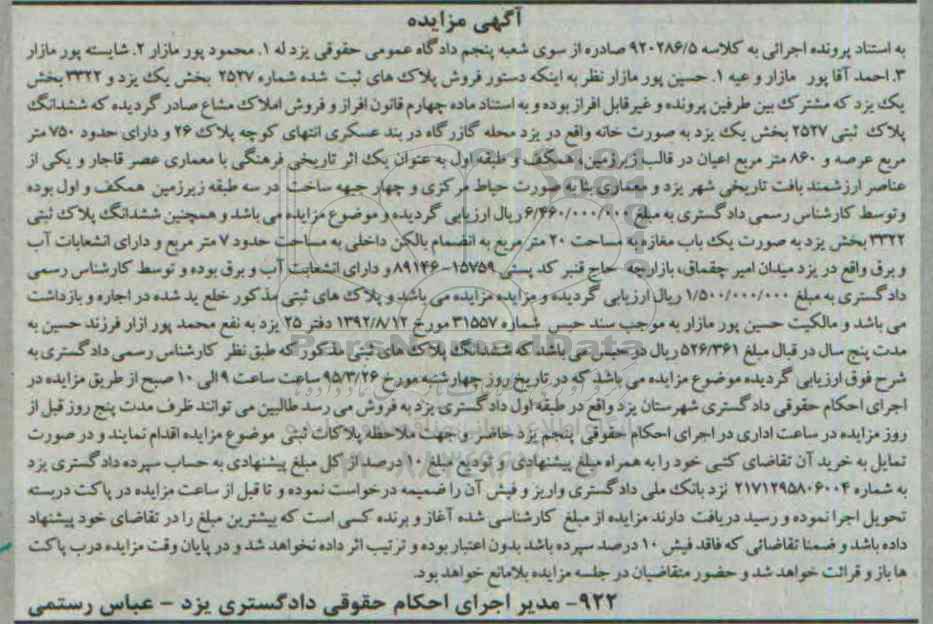 آگهی مزایده
به استناد پرونده اجرائی به کلاسه ۹۲۰۲۸۶/۵ صادره از سوی شعبه پنجم دادگاه عمومی حقوقی یزد له ۱. محمود پور مازار ۲. شایسته پور مازار
۳. احمد آقا پور مازار و عیه ۱. حسین پور مازار نظر به اینکه دستور فروش پلاک های ثبت شده شماره ۲۵۲۷ بخش یک یزد و ۳۳۲۲ بخش
یک یزد که مشترک بین طرفین پرونده و غیرقابل افراز بوده و به استناد ماده چهارم قانون افراز و فروش املاک مشاع صادر گردیده که ششدانگ
پلاک ثبتی ۲۵۲۷ بخش یک یزد به صورت خانه واقع در یزد محله گازرگاه در بند عسکری انتهای کوچه پلاک ۲۶ و دارای حدود ۷۵۰ متر
مربع عرصه و ۸۶۰ متر مربع اعیان در قالب زیرزمین، همکف و طبقه اول به عنوان یک اثر تاریخی فرهنگی با معماری عصر قاجار و یکی از
عناصر ارزشمند بافت تاریخی شهر یزد و معماری بنا به صورت حیاط مرکزی و چهار جبهه ساخت در سه طبقه زیرزمین همکف و اول بوده
وتوسط کارشناس رسمی دادگستری به مبلغ ۶/۴۶۰/۰۰۰/۰۰۰ ریال ارزیابی گردیده و موضوع مزایده می باشد و همچنین ششدانگ پلاک ثبتی
۳۳۲۲ بخش یزد به صورت یک باب مغازه به مساحت ۲۰ متر مربع به انضمام بالکن داخلی به مساحت حدود ۷ متر مربع و دارای انشعابات آب
و برق واقع در یزد میدان امیر چقماق، بازارچه حاج قنبر کد پستی ۱۵۷۵۹-۸۹۱۴۶ و دارای انشعابت آب و برق بوده و توسط کارشناس رسمی
دادگستری به مبلغ ۱/۵۰۰/۰۰۰/۰۰۰ ریال ارزیابی گردیده و مزایده مزایده می باشد و پلاک های ثبتی مذکور خلع ید شده در اجاره و بازداشت
می باشد و مالکیت حسین پور مازار به موجب سند حبس شماره ۳۱۵۵۷ مورخ ۱۳۹۲/۸/۱۲ دفتر ۲۵ یزد به نفع محمد پور ازار فرزند حسین به
مدت پنج سال در قبال مبلغ ۵۲۶/۳۶۱ ریال در حبس می باشد که ششدانگ پلاک های ثبتی مذکور که طبق نظر کارشناس رسمی دادگستری به
شرح فوق ارزیابی گردیده موضوع مزایده می باشد که در تاریخ روز چهارشنبه مورخ ۹۵/۳/۲۶ ساعت ساعت ۹ الی ۱۰ صبح از طریق مزایده در
اجرای احکام حقوقی دادگستری شهرستان یزد واقع در طبقه اول دادگستری یزد به فروش می رسد طالبین می توانند ظرف مدت پنج روز قبل از
روز مزایده در ساعت اداری در اجرای احکام حقوقی پنجم یزد حاضر و جهت ملاحظه پلاکات ثبتی موضوع مزایده اقدام نمایند و در صورت
تمایل به خرید آن تقاضای کتبی خود را به همراه مبلغ پیشنهادی و تودیع مبلغ ۱۰ درصد از کل مبلغ پیشنهادی به حساب سپرده دادگستری یزد
به شماره ۲۱۷۱۲۹۵۸۰۶۰۰۴ نزد بانک ملی دادگستری واریز و فیش آن را ضمیمه درخواست نموده و تا قبل از ساعت مزایده در پاکت دربسته
تحویل اجرا نموده و رسید دریافت دارند مزایده از مبلغ کارشناسی شده آغاز و برنده کسی است که بیشترین مبلغ را در تقاضای خود پیشنهاد
داده باشد و ضمنا تقاضائی که فاقد فیش ۱۰ درصد سپرده باشد بدون اعتبار بوده و ترتیب اثر داده نخواهد شد و در پایان وقت مزایده درب پاکت
ها باز و قرائت خواهد شد و حضور متقاضیان در جلسه مزایده بلامانع خواهد بود.
۹۲۲- مدیر اجرای احکام حقوقی دادگستری یزد - عباس رستمی
ParsNamadData